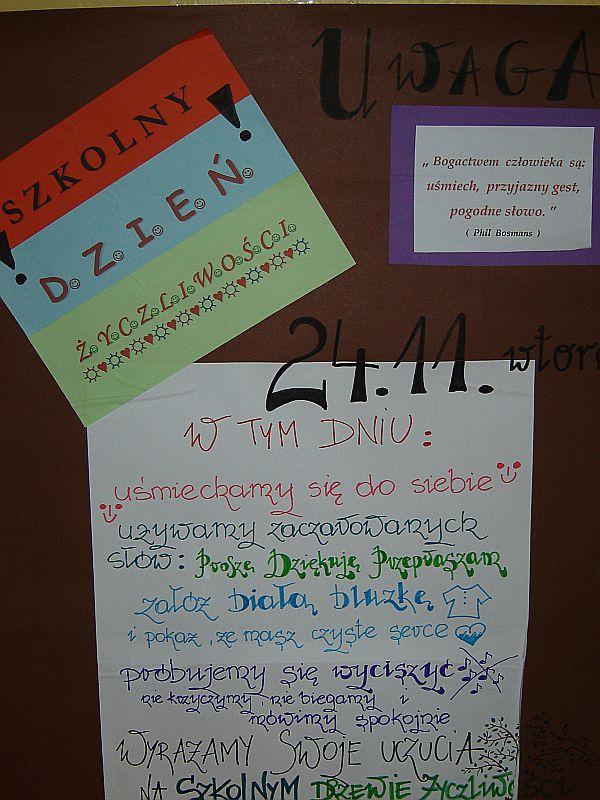 UWAGA
SZKOLNY !
! DZIEŃ
ŻYCZLIWOŚCI
„ Bogactwem człowieka są:
uśmiech, przyjazny gest,
pogodne słowo. ”
( Phil Bosmans )
24.11. wtor
W TYM DNIU :
uśmiechamy się do siebie
używamy zaczarowanych
słów : Proszę Dziękuję Przepraszam
załóż białą bluzkę
i pokaż , że masz czyste serce
próbujemy się wyciszyć
nie krzyczymy , nie biegamy i
mówimy spokojnie
WYRAŻAMY SWOJE UCZUCIA
NA SZKOLNYM DRZEWIE ŻYCZLIWOŚCI